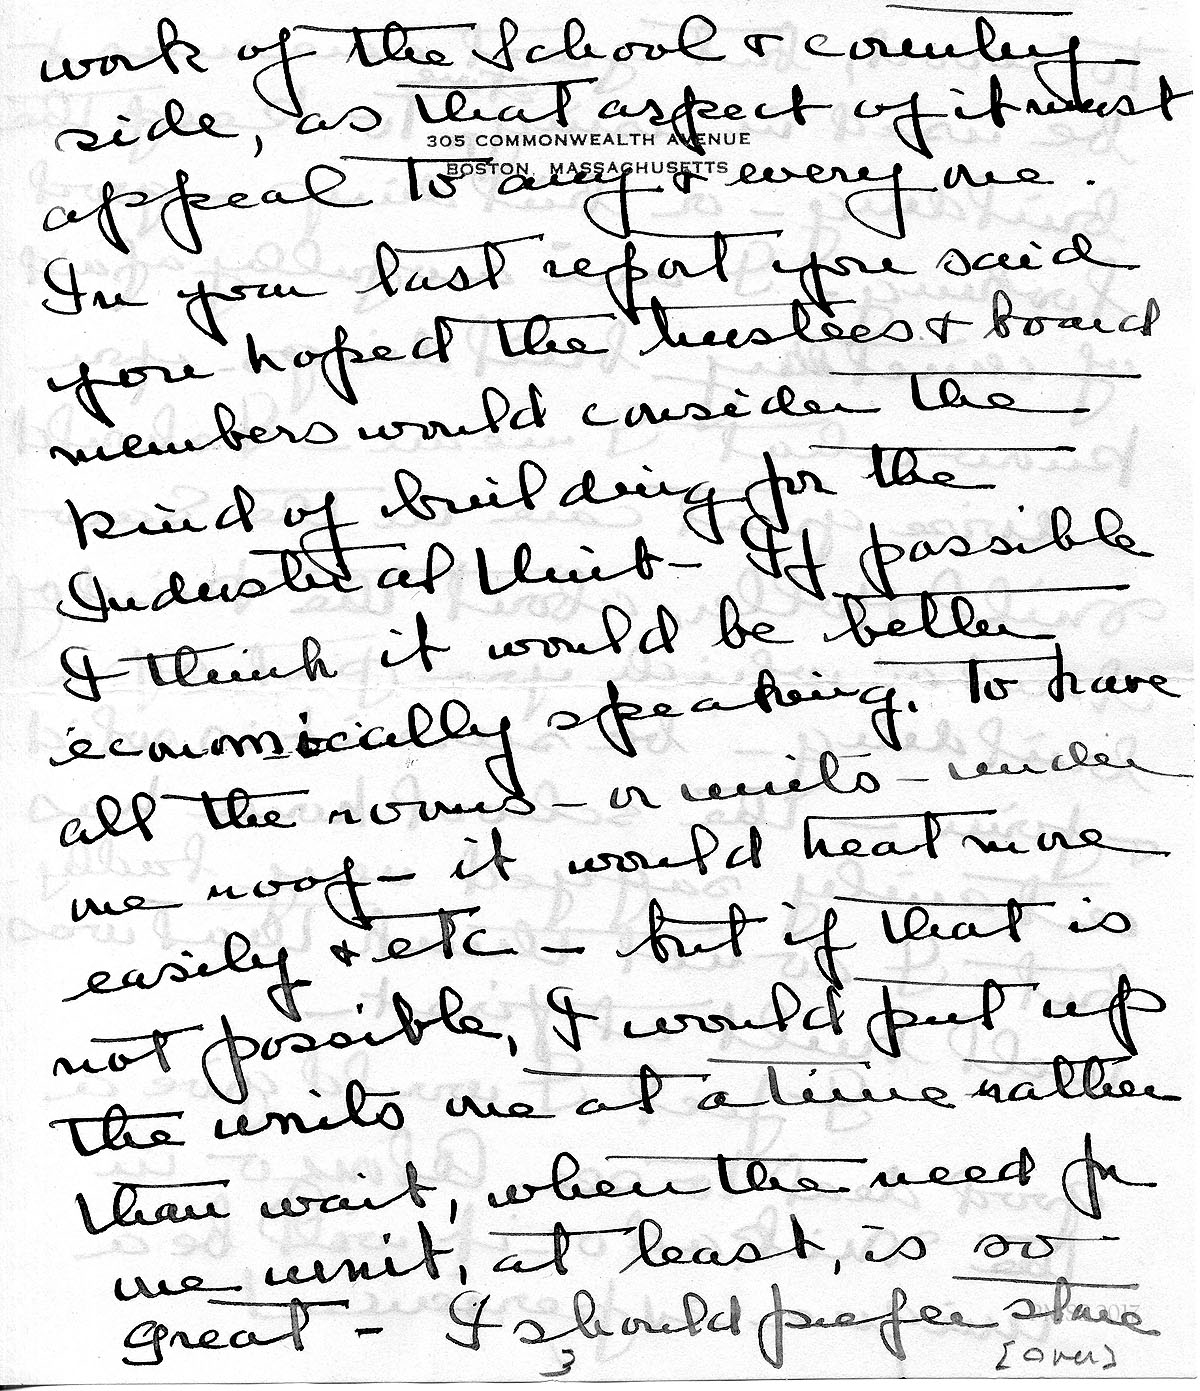 work of the School & country
side, as that aspect of it must
305 COMMONWEALTH AVENUE
BOSTON, MASSACHUSETTS
appeal to any & every one.
In your last report you said
you hoped the trustees & board
members would consider the
kind of building for the
Industrial Unit - If possible
I think it would be better
economically speaking, to have
all the rooms - or units - under
one roof - it would heat more
easily & etc - but if that is
not possible, I would put up
the units one at a time rather
than wait, when the need for
one unit, at least, is so
great - I should prefer stone
3
[over]